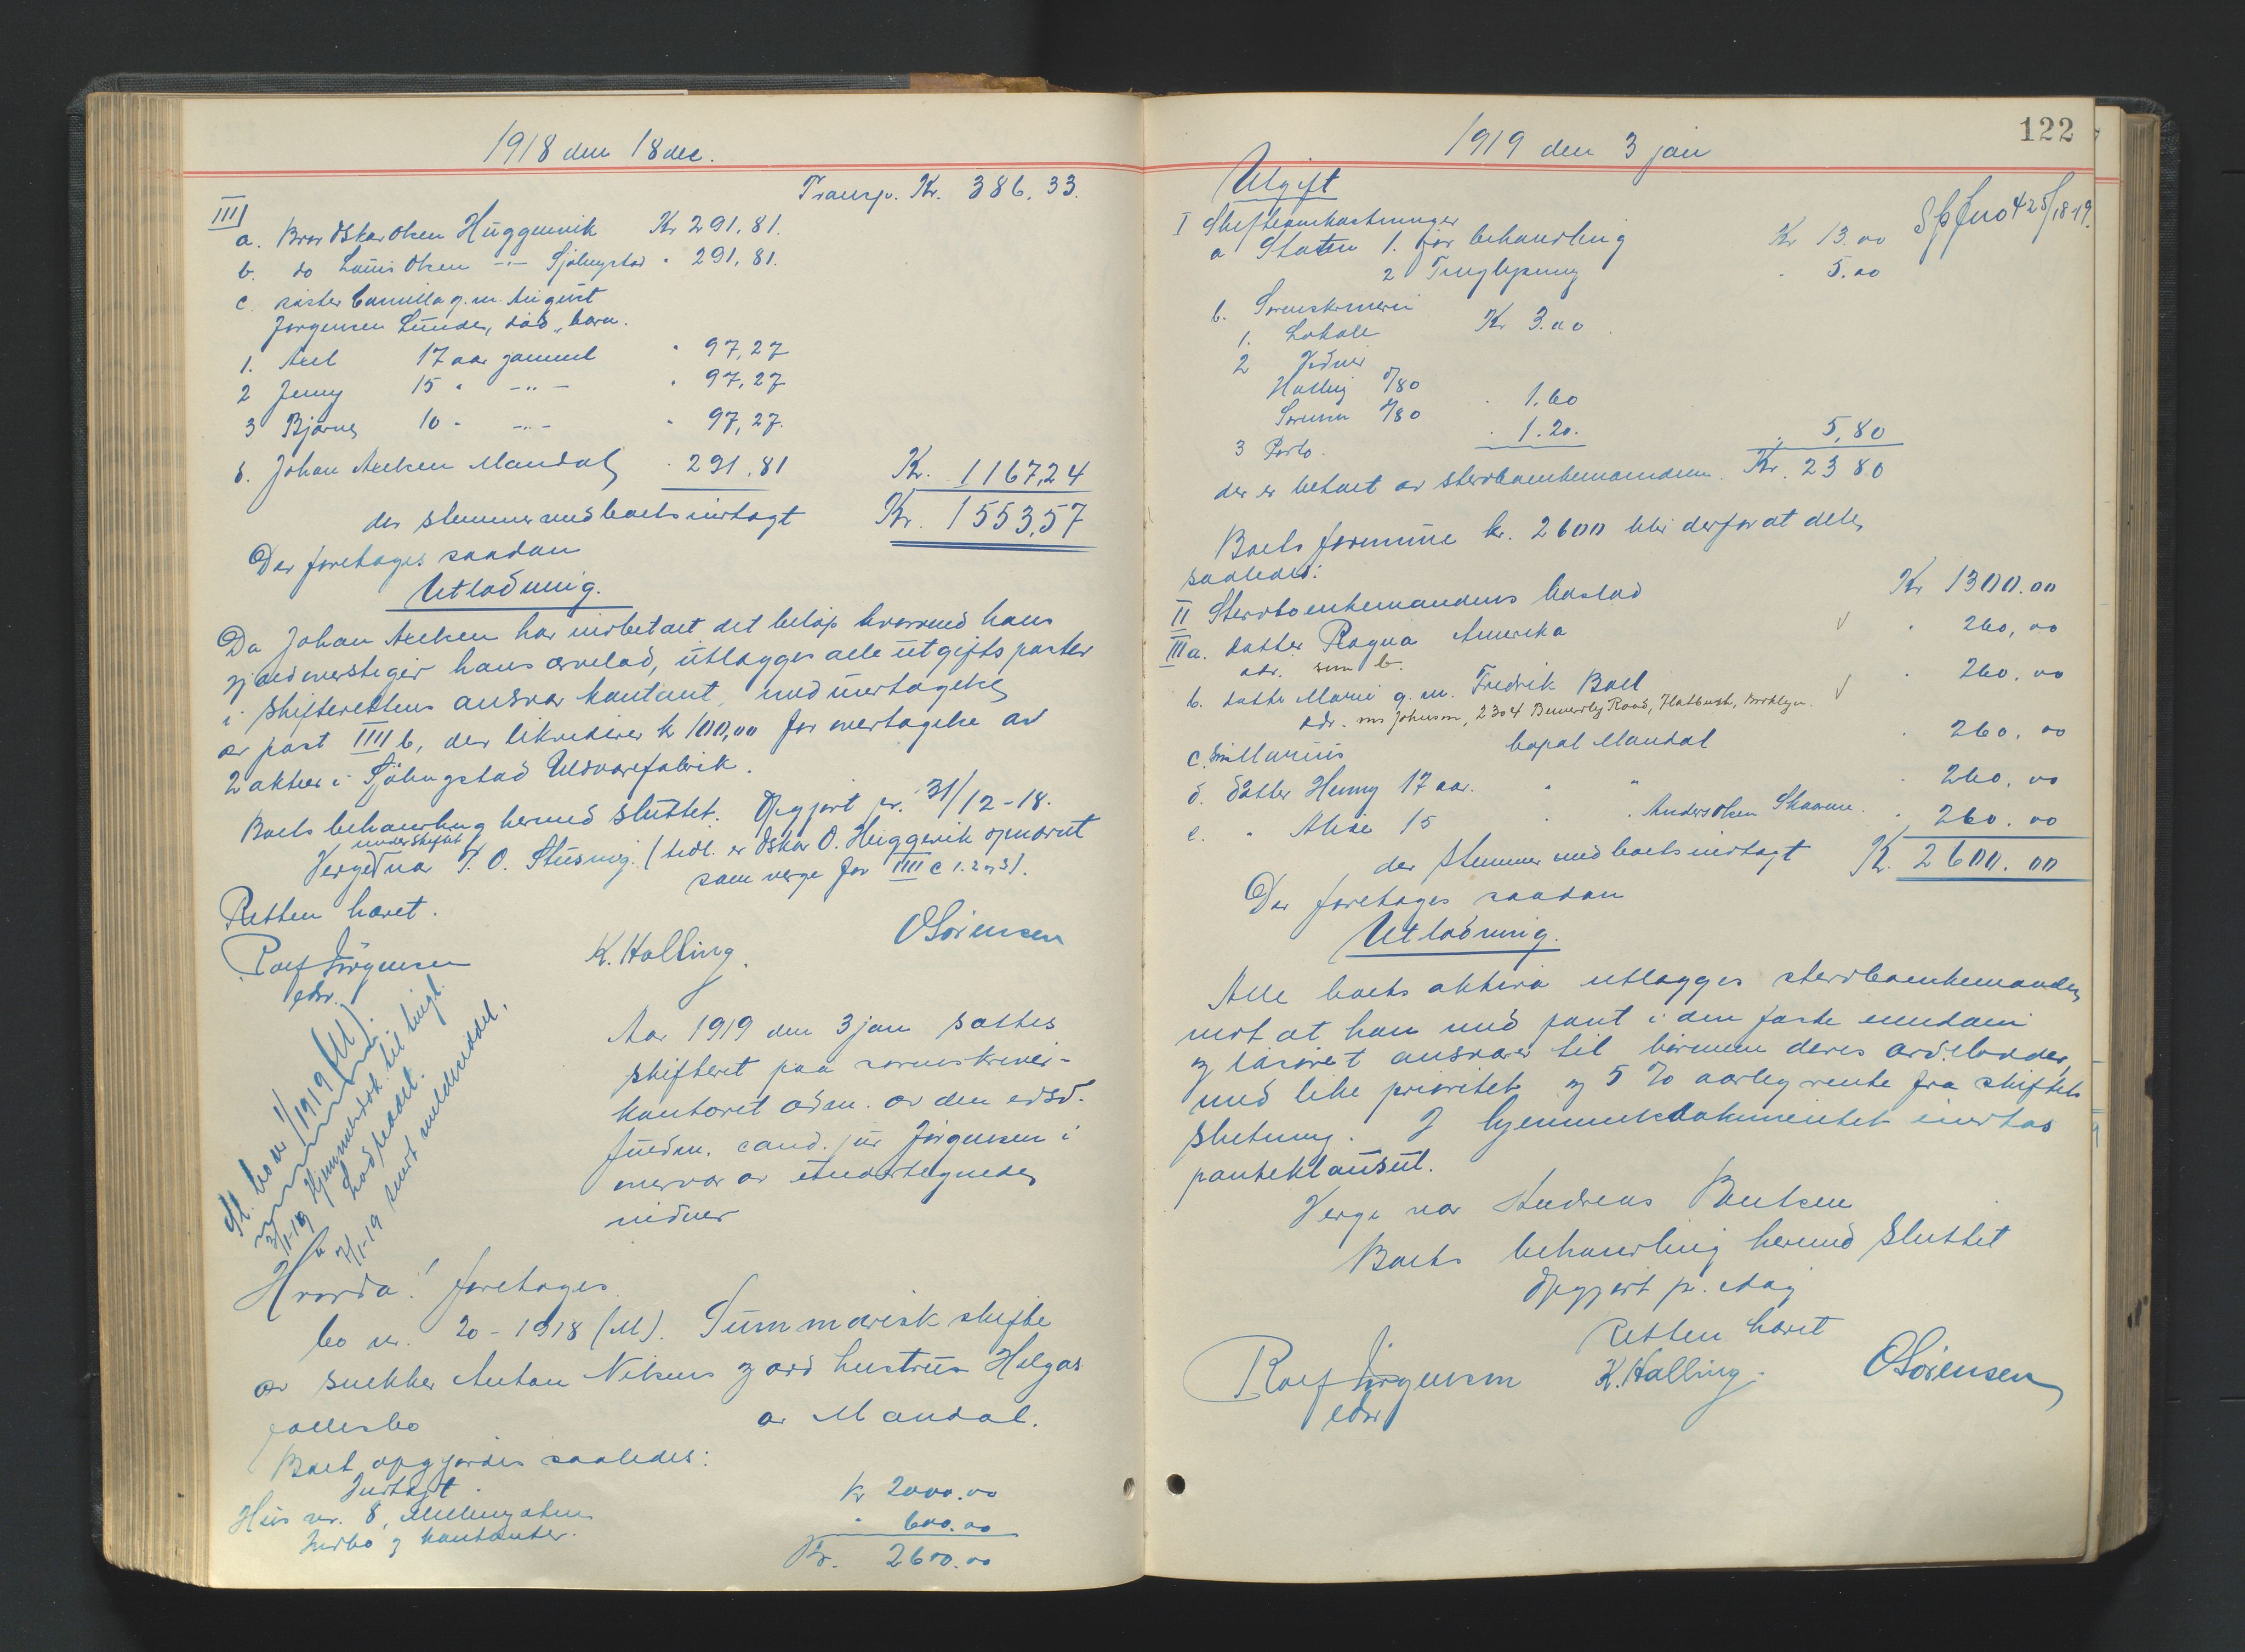 1918 den 18 dec.
Transp. Kr. 386.33.
IIII
a. Bror Oskar Olsen Huggenvik Kr 291,81.
b. do Louis Olsen -"- Sjølingstad " 291,81.
c. søster Camilla g. m. August
Jørgensen Lunde, død, børn.
1. Axel 17 aar gammel " 97,27
2 Jenny 15 " -"- " 97,27
3 Bjarne 10 " -"- " 97,27.
d. Johan Axelsen Mandal " 291.81 Kr. 1167,24
der stemmer med boets indtægt Kr. 1553,57
Der foretages saadan
Utlodning.
Da Johan Axelsen har indbetalt det beløp hvormed hans
gjæld overstiger hans arvelod, utlægges alle utgiftsposter
i skifterettens ansvar kontant, med undtagelse
av post IIII b, der likviderer kr 100,00 for overtagelse av
2 aktier i Sjølingstad Uldvarefabrik.
Boets behandling hermed sluttet. Opgjort pr. 31/12-18.
under skiftet
Verge var T. O. Stusvig. (Midl. er Oskar O. Huggenvik opnævnt
som verge for IIII c 1. 2 og 3).
Retten hævet.
Rolf Jørgensen K. Halling. O Sørensen
edsv.
Sl. bo nr 1/1919 (M)
3/1-19 Hjemmelsdok. til tingl.
Lodseddel.
7/1-19 sendt
Aar 1919 den 3 jan sattes
skifteret paa sorenskriver-
kontoret adm. av den edsv.
fuldm. cand. jur Jørgensen i
overvær av undertegnede
vidner
Hvorda! foretages
bo nr. 20-1918 (M). Summarisk skifte
av snekker Anton Nilsens og avd hustrus Helgas
fællesbo av Mandal.
Boet opgjordes saaledes:
Indtægt
Hus nr. 8, kr 2000.00
Indbo og kontanter. " 600.00
Kr. 2600.00
1919 den 3 jan
122
Utgift
425/18-19.
I Skifteomkostninger
a Staten 1. for behandling Kr 13.00
2 Tinglysning " 5.00
b. Sorenskriveri
1. Lokale Kr 3.00
2 Vidner
Halling 0/80
Sørensen 0/80 " 1.60
3 Porto. " 1.20. " 5,80
der er betalt av stervboenkemanden. Kr. 23 80
Boets formue kr. 2600 blir derfor at dele
saaledes:
II Stervboenkemandens boslod Kr 1300.00
III a. datter Ragna Amerika " 260,00
adr. som b.
b. datter Marie g. m. Fredrik Boel " 260.00
adr. mrs Johnson, 2304 Beverley Road, Flatbush, Brooklyn.
c. søn Marius Kapel Mandal " 260.00
d. datter Henny 17 aar. " " " 260.00
e. " Alise 15 " " Anders Olsen Skaarne. " 260.00
der stemmer med boets indtægt Kr. 2600.00
Der foretages saadan
Utlodning.
Alle boets aktiva utlægges stervboenkemanden
mot at han med pant i den faste eiendom
og løsøret ansvarer til børnene deres arvelodder,
med like prioritet og 5 % aarlig rente fra skiftets
slutning. I hjemmelsdokumentet indtas
panteklausul.
Verge var Andreas Bentsen
Boets behandling hermed sluttet
Opgjort pr. idag
Retten hævet
Rolf Jørgensen K. Halling. O Sørensen
edsv